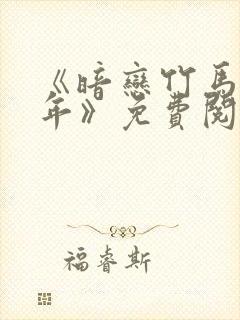 《暗戀竹馬
年》免費閱
福睿斯